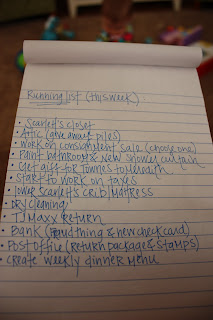 Running list (this week)
• Scarlett's closet
• Attic (give away piles)
• Work on consignment sale (choose one)
• Paint bathroom & new shower curtain
• Get gift for Townes to Meriah
• Start to work on taxes
• lower Scarlett's crib mattress
• Dry cleaning
• TJ Maxx return
• Bank (fraud thing & new check card)
• Post office (return package & stamps)
• create weekly dinner menu